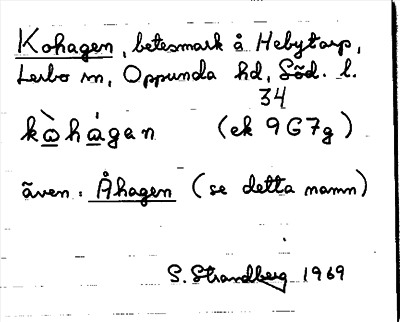 Kohagen, betesmark å Hebytorp,
Lerbo sn, Oppunda hd, Söd. l.
34
kòhágan (ek 9G7g)
även: Åhagen (se detta namn)
S. Strandberg 1969